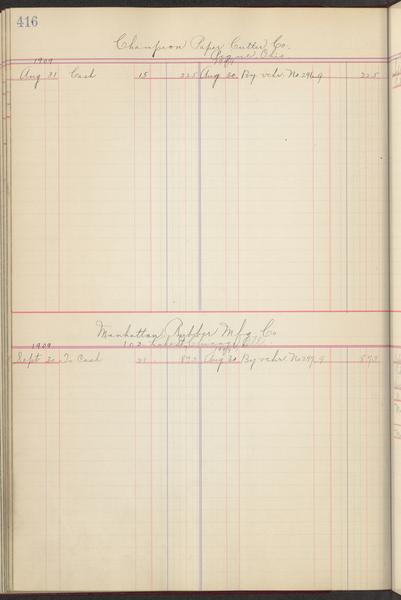 416
Champion Paper Cutter Co.
Ohio
1909
Aug 31 Cash 15 225 Aug 20 By vchr No 296 9 225
Manhattan Rubber Mfg Co
1909
Sept 20 To Cash 21 Aug 20 By vchr No 297 9